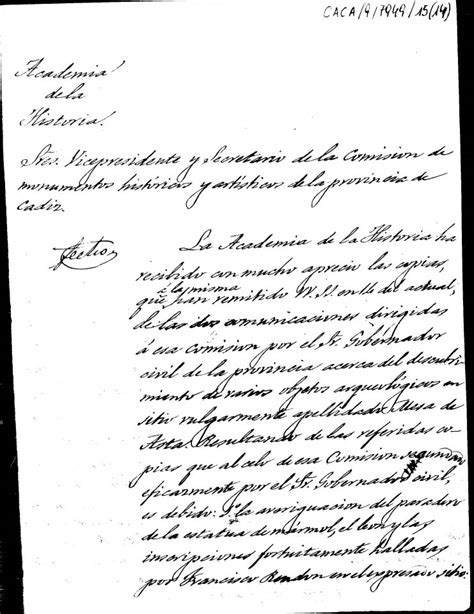 CACA/9/7949/15(14)
Academia
de la
Historia.
Sres. Vicepresidente y Secretario de la Comision de
monumentos históricos y artísticos de la provincia de
Cadiz.
La Academia de la Historia ha
recibido con mucho aprecio las copias,
á la misma
que han remitido V.S. en 16 del actual,
de las dos comunicaciones dirigidas
á esa Comision por el Sr. Gobernador
civil de la provincia acerca del descubri-
miento de varios objetos arqueológicos en
sitio vulgarmente apellidado Mesa de
Asta. Resultando de las referidas co-
pias que al celo de esa Comision
eficazmente por el Sr. Gobernador civil,
es debido: 1º la averiguacion del paradero
de la estatua de mármol, el leon y las
inscripciones fortuitamente halladas
por Francisco Rendon en el expresado sitio: